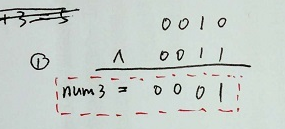 +3=5
0010
① ∧ 0011
num3 = 0001